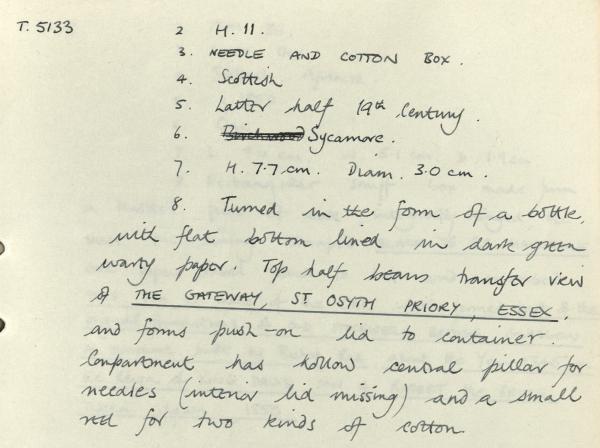 T. 5133
2 H. 11.
3. NEEDLE AND COTTON BOX.
4. Scottish
5. Latter half 19th Century.
6. Birchwood Sycamore.
7. H. 7.7 cm. Diam. 3.0 cm.
8. Turned in the form of a bottle,
with flat bottom lined in dark green
warty paper. Top half bears transfer view
of THE GATEWAY, ST OSYTH PRIORY, ESSEX,
and forms push-on lid to container.
Compartment has hollow central pillar for
needles (interior lid missing) and a small
reel for two kinds of cotton.